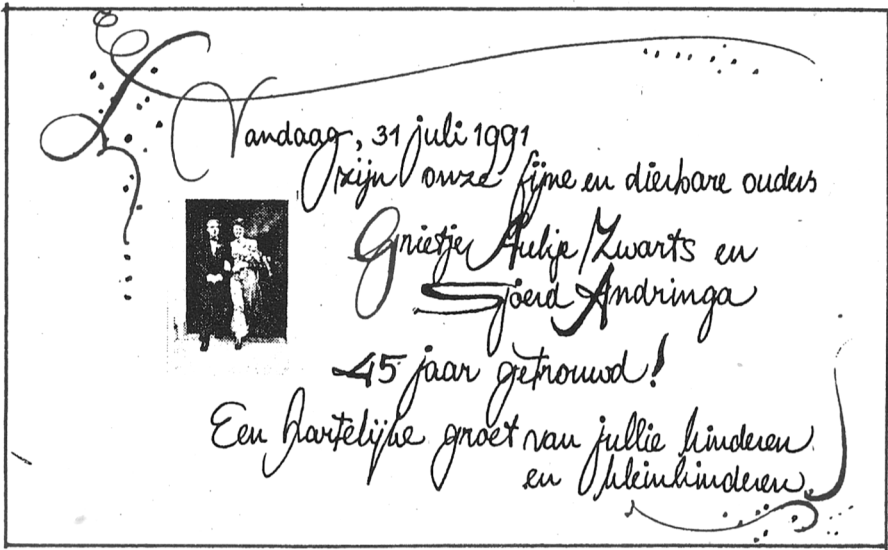 Vandaag, 31 juli 1991
zijn onze fijne en dierbare ouders
Grietje Aukje Zwarts en
Sjoerd Andringa
45 jaar getrouwd!
Een hartelijke groet van jullie kinderen
en kleinkinderen.